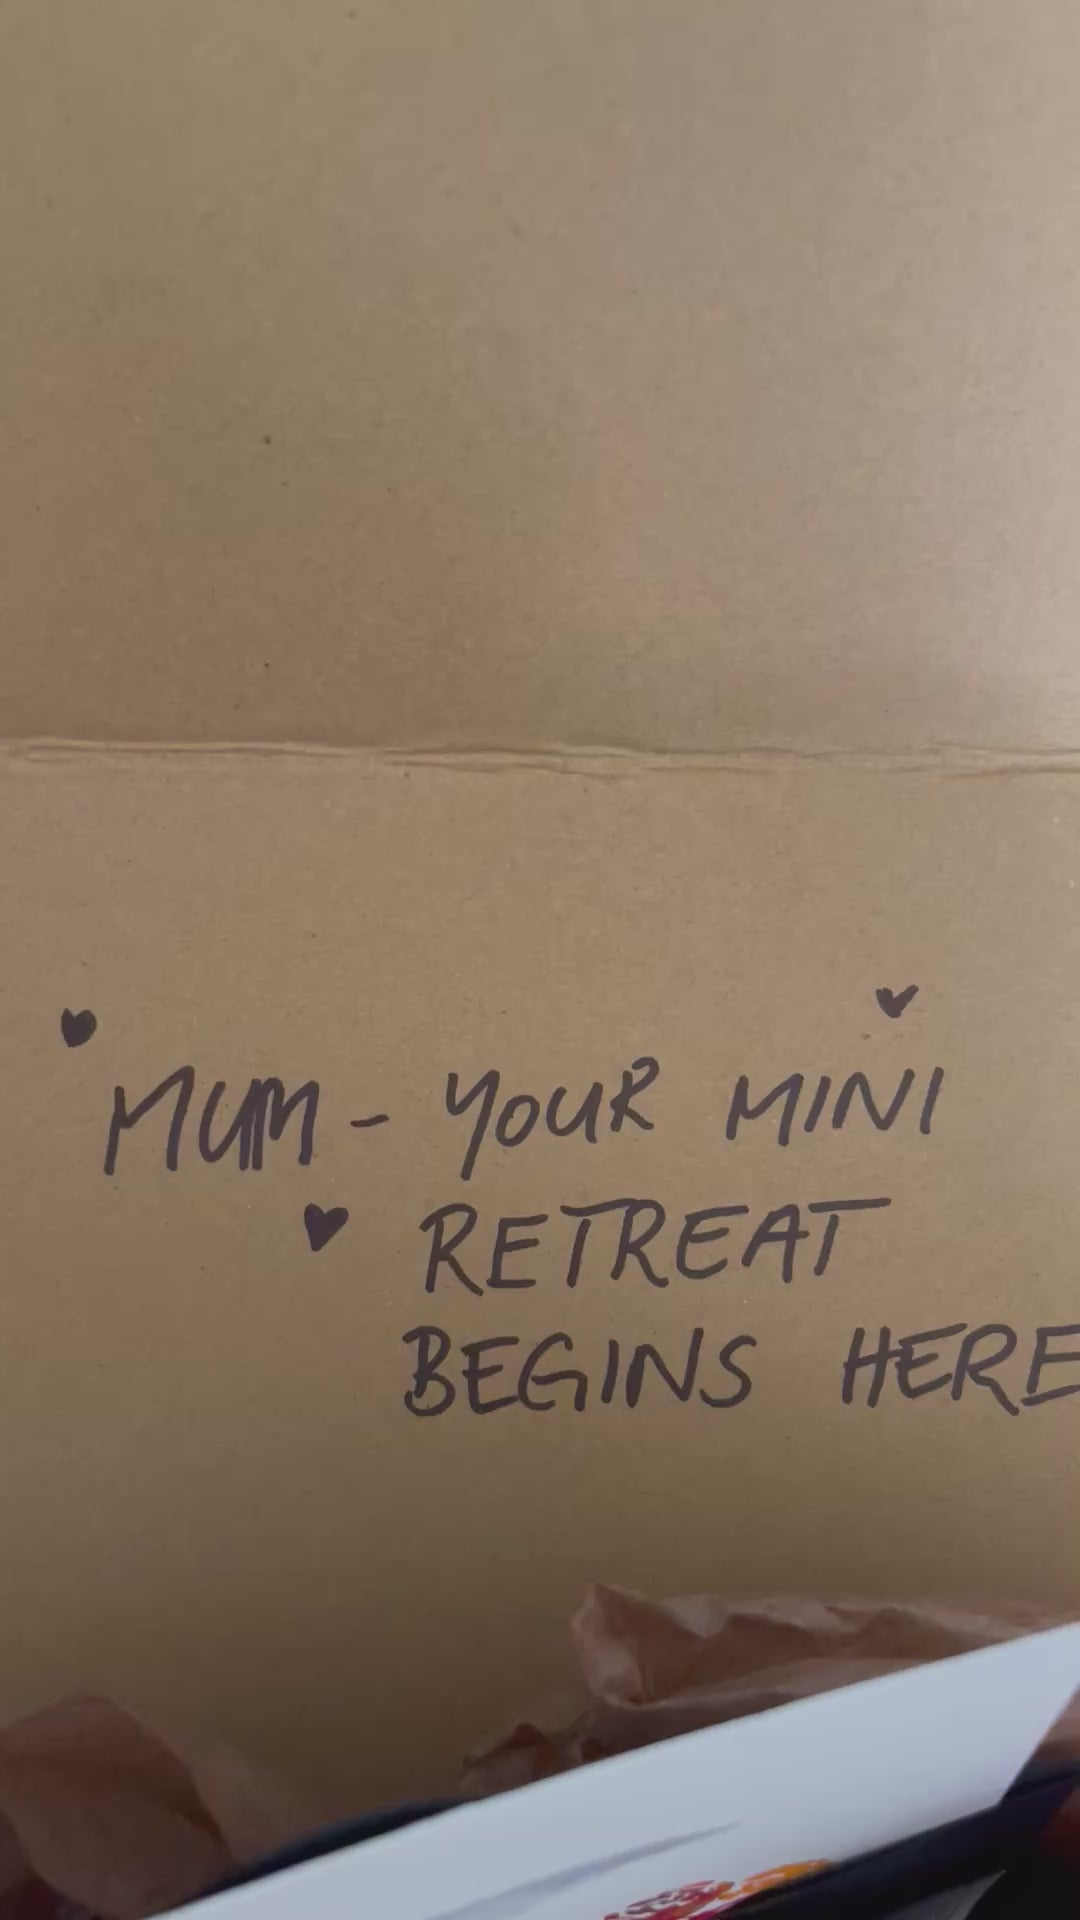 MUM - YOUR MINI
RETREAT
BEGINS HERE